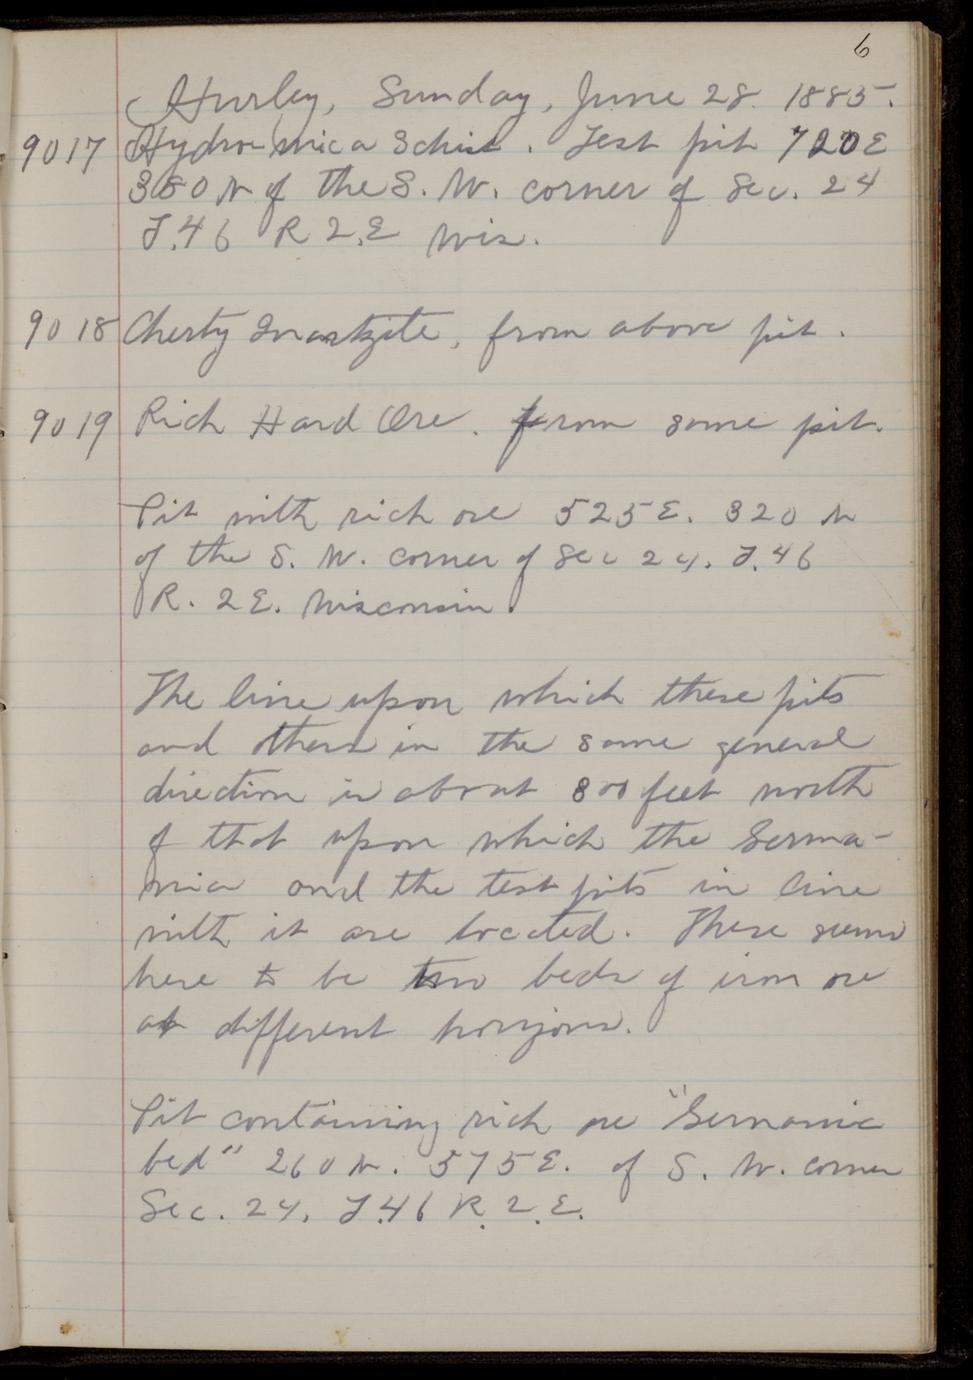 6
Hurley, Sunday, June 28. 1885.
9017 Hydro-mica Schist. Test pit 720 E
380 N of the S. W. corner of Sec. 24
T.46 R 2.E Wis.
9018 Cherty Quartzite, from above pit.
9019 Rich Hard Ore. From same pit.
Pit with rich ore 525 E. 320 N
of the S. W. corner of Sec 24. T.46
R. 2 E. Wisconsin.
The line upon which these pits
and others in the same general
direction is about 800 feet north
of that upon which the Germa-
nia and the test pits in line
with it are located. There seems
here to be two beds of iron ore
at different horizons.
Pit containing rich ore "Germania
bed" 260 N. 575 E. of S. W. corner
Sec. 24. T.46 R. 2. E.